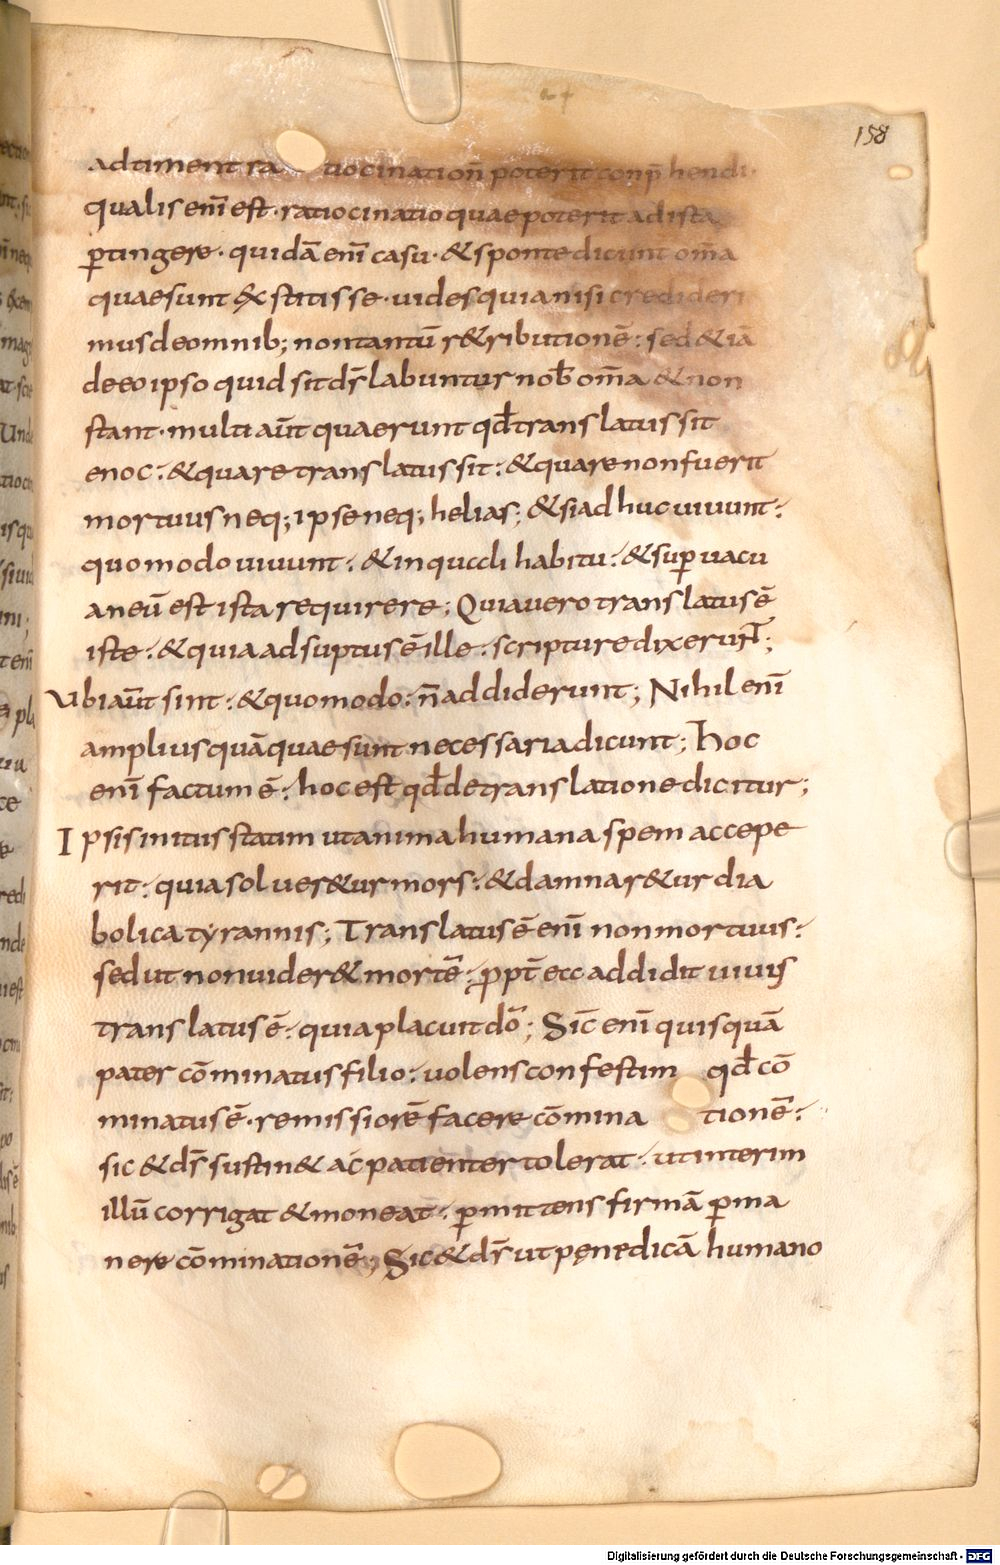 158
adtiment ra tiocination̄ poterit conp̄hendi·
qualis enī est· ratiocinatio quae poterit ad ista
ꝑtingere· quidā enī casu· & sponte dicunt om̄a
quae sunt exstitisse· uides quia nisi credideri
mus de omnib; non tantū r&ributionē: sed & iā
de eo ipso quid sit dr̄ labuntur nob̄ om̄a & non
stant· multi aūt quaerunt qđ translatus sit
enoc: & quare translatus sit: & quare non fuerit
mortuus neq; ipse neq; helias; & si adhuc uiuunt:
quomodo uiuunt: & in quccli habitu: & suꝑuacu
aneū est ista requirere; Quia uero translatus ē
iste: & quia adsuptus ē ille· scripture dixerunt;
Ubi aūt sint: & quomodo: n̄ addiderunt; Nihil enī
amplius quā quae sunt necessaria dicunt; Hoc
enī factum ē: hoc est qđ de translatione dicitur;
Ipsis initus statim ut anima humana spem accepe
rit: quia soluer&ur mors: & damnar&ur dia
bolica tyrannis; Translatus ē enī non mortuus:
sed ut non uider& mortē: ꝓpt̄ ecc addidit uiuus
translatus ē: quia placuit dō; Sic enī quisquā
pater cōminatus filio: uolens confestim qđ cō
minatus ē· remissiorē facere cōmina tionē:
sic & dr̄ sustin& ac patienter tolerat· ut interim
illū corrigat & moneat· ꝑmittens firmā ꝑma
nere cōminationē; Sic & dr̄ ut pęne dicā humano
Digitalisierung gefördert durch die Deutsche Forschungsgemeinschaft - DFG